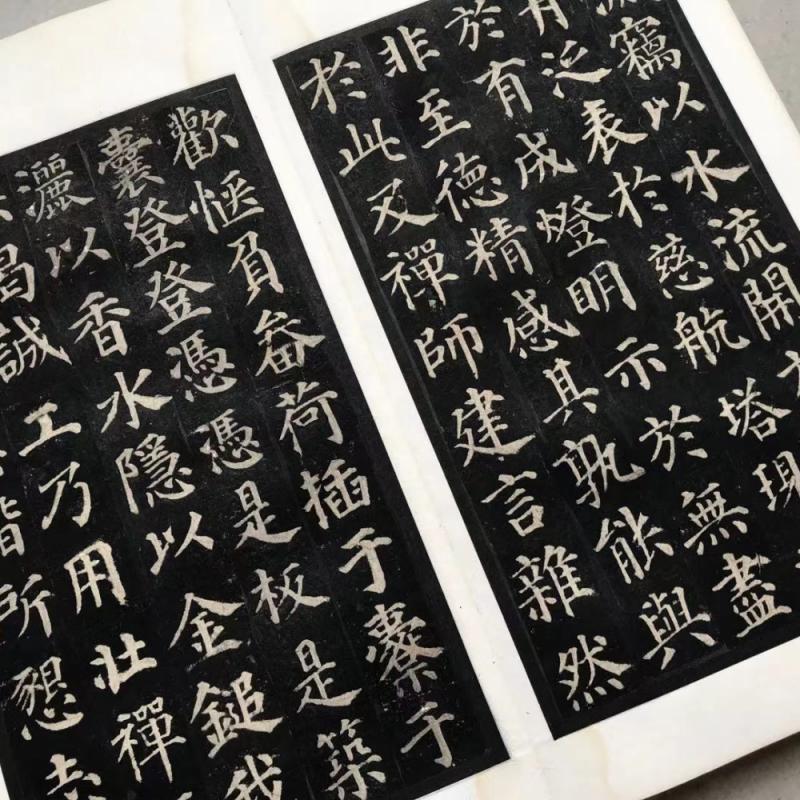 竊以水流開
泛表於慈航塔現
於有成燈明示於無盡
非至德精感其孰能與
於此及禪師建言雜然
歡愜負畚荷插于橐于
囊登登憑憑是板是築
灑以香水隱以金鎚我
竭誠工乃用壯禪
階所懇志